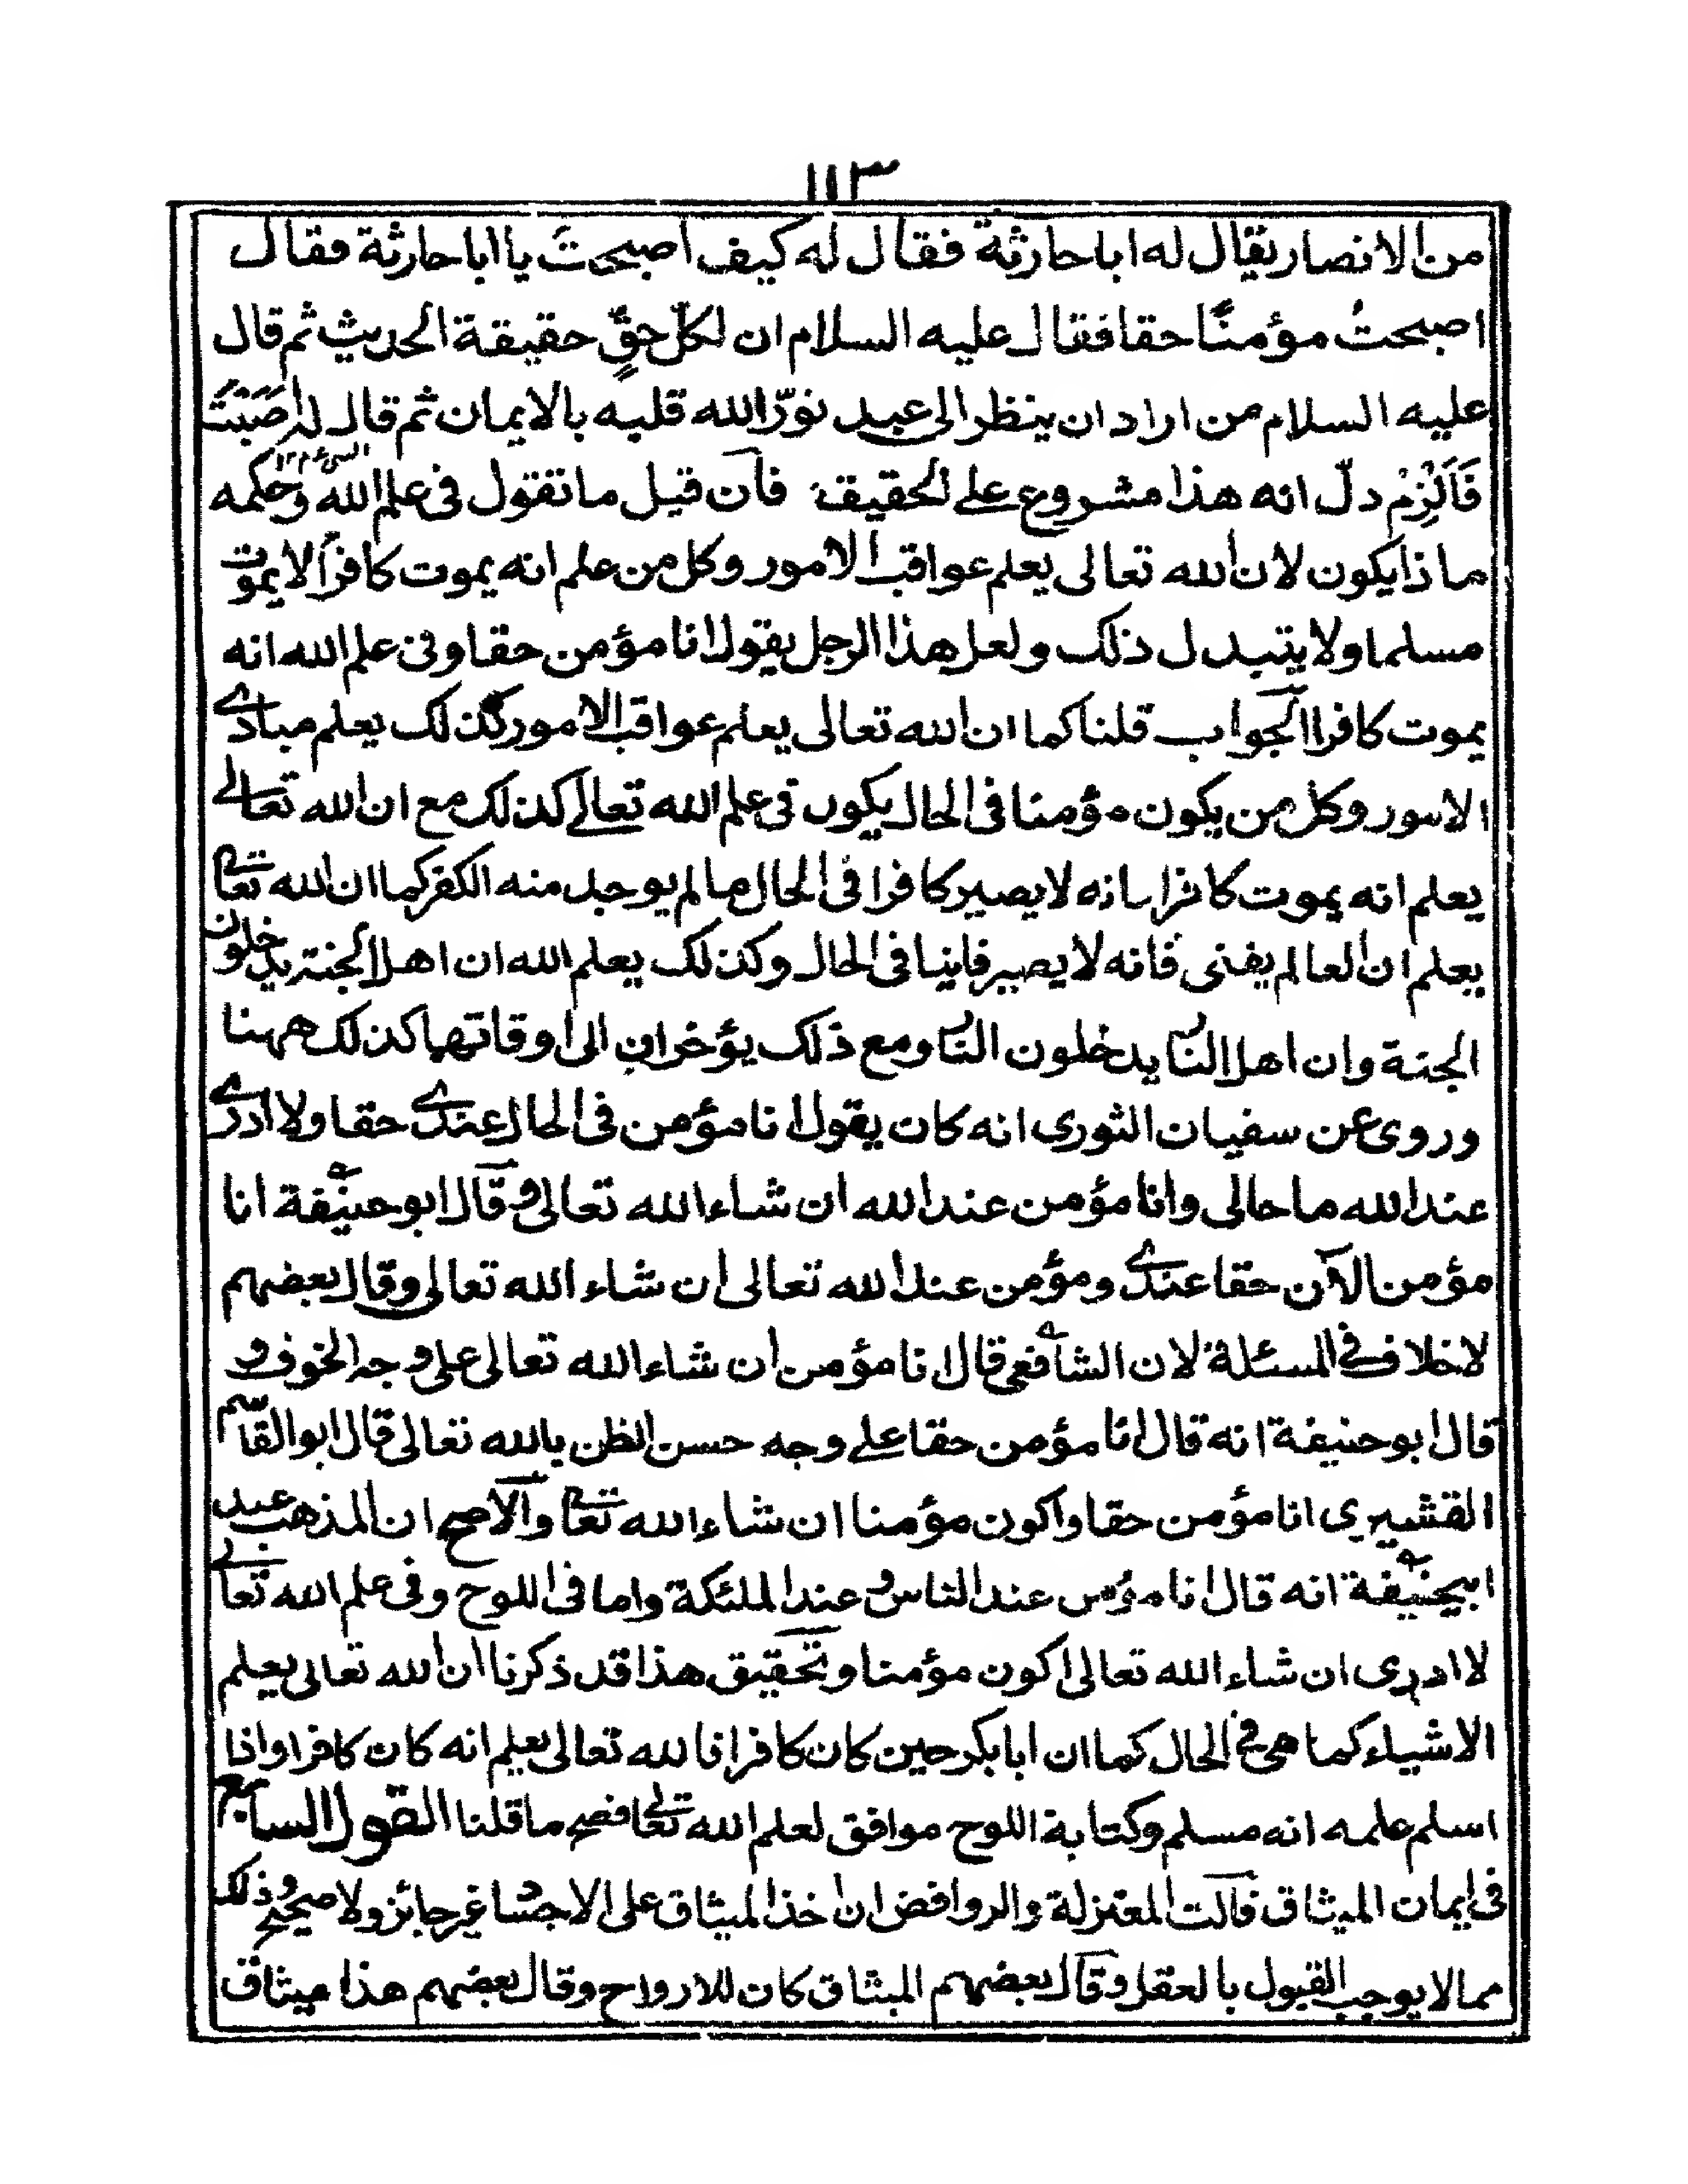 ١١٣
من الانصار يقال له ابا حارثة فقال له كيف اصبحتَ يا ابا حارثة فقال
اصبحتُ مؤمنًا حقا فقال عليه السلام ان لكل حقٍّ حقيقة الحديث ثم قال
عليه السلام من اراد ان ينظر الى عبد نوّر الله قلبه بالايمان ثم قال له اَصَبْتَ
فَاَلْزِمْ دلّ انه هذا مشروع على الحقيقة فان قيل ما تقول فى علم الله وحكمه
ماذا يكون لان الله تعالى يعلم عواقب الامور وكل من علم انه يموت كافرا لا يموت
مسلما ولا يتبدل ذلك ولعل هذا الرجل يقول انا مؤمن حقا وفى علم الله انه
يموت كافرا الجواب قلنا كما ان الله تعالى يعلم عواقب الامور كذلك يعلم مبادے
الامور وكل من يكون مؤمنا فى الحال يكون فى علم الله تعالے كذلك مع ان الله تعالے
يعلم انه يموت كافرا فانه لا يصير كافرا فى الحال ما لم يوجد منه الكفر كما ان الله تعا
يعلم ان العالم يفنى فانه لا يصير فانيا فى الحال وكذلك يعلم الله ان اهل الجنة يدخلون
الجنة وان اهل النار يدخلون النار ومع ذلك يؤخران الى اوقاتهما كذلك ههنا
وروى عن سفيان الثورى انه كان يقول انا مؤمن فى الحال عندے حقا ولا ادرے
عند الله ما حالى وانا مؤمن عند الله ان شاء الله تعالى وقال ابو حنيفة انا
مؤمن الآن حقا عندے ومؤمن عند الله تعالى ان شاء الله تعالى وقال بعضهم
لا خلاف فى المسئلة لان الشافعى قال انا مؤمن ان شاء الله تعالى على وجه الخوف و
قال ابو حنيفة انه قال انا مؤمن حقا على وجه حسن الظن بالله تعالى قال ابو القاسم
القشيرى انا مؤمن حقا واكون مؤمنا ان شاء الله تعا والاصح ان المذهب عند
ابيحنيفة انه قال انا مؤمن عند الناس وعند الملئكة واما فى اللوح وفى علم الله تعالى
لا ادرى ان شاء الله تعالى اكون مؤمنا وتحقيق هذا قد ذكرنا ان الله تعالى يعلم
الاشياء كما هى فى الحال كما ان ابا بكر حين كان كافرا فا لله تعالى يعلم انه كان كافرا واذا
اسلم علمه انه مسلم وكتابة اللوح موافق لعلم الله تعالى فصح ما قلنا القول السابع
فى ايمان الميثاق قالت المعتزلة والروافض ان اخذ الميثاق على الاجساد غير جائز ولا صحيح وذلك
مما لا يوجب القبول بالعقل وقال بعضهم الميثاق كان للارواح وقال بعضهم هذا ميثاق